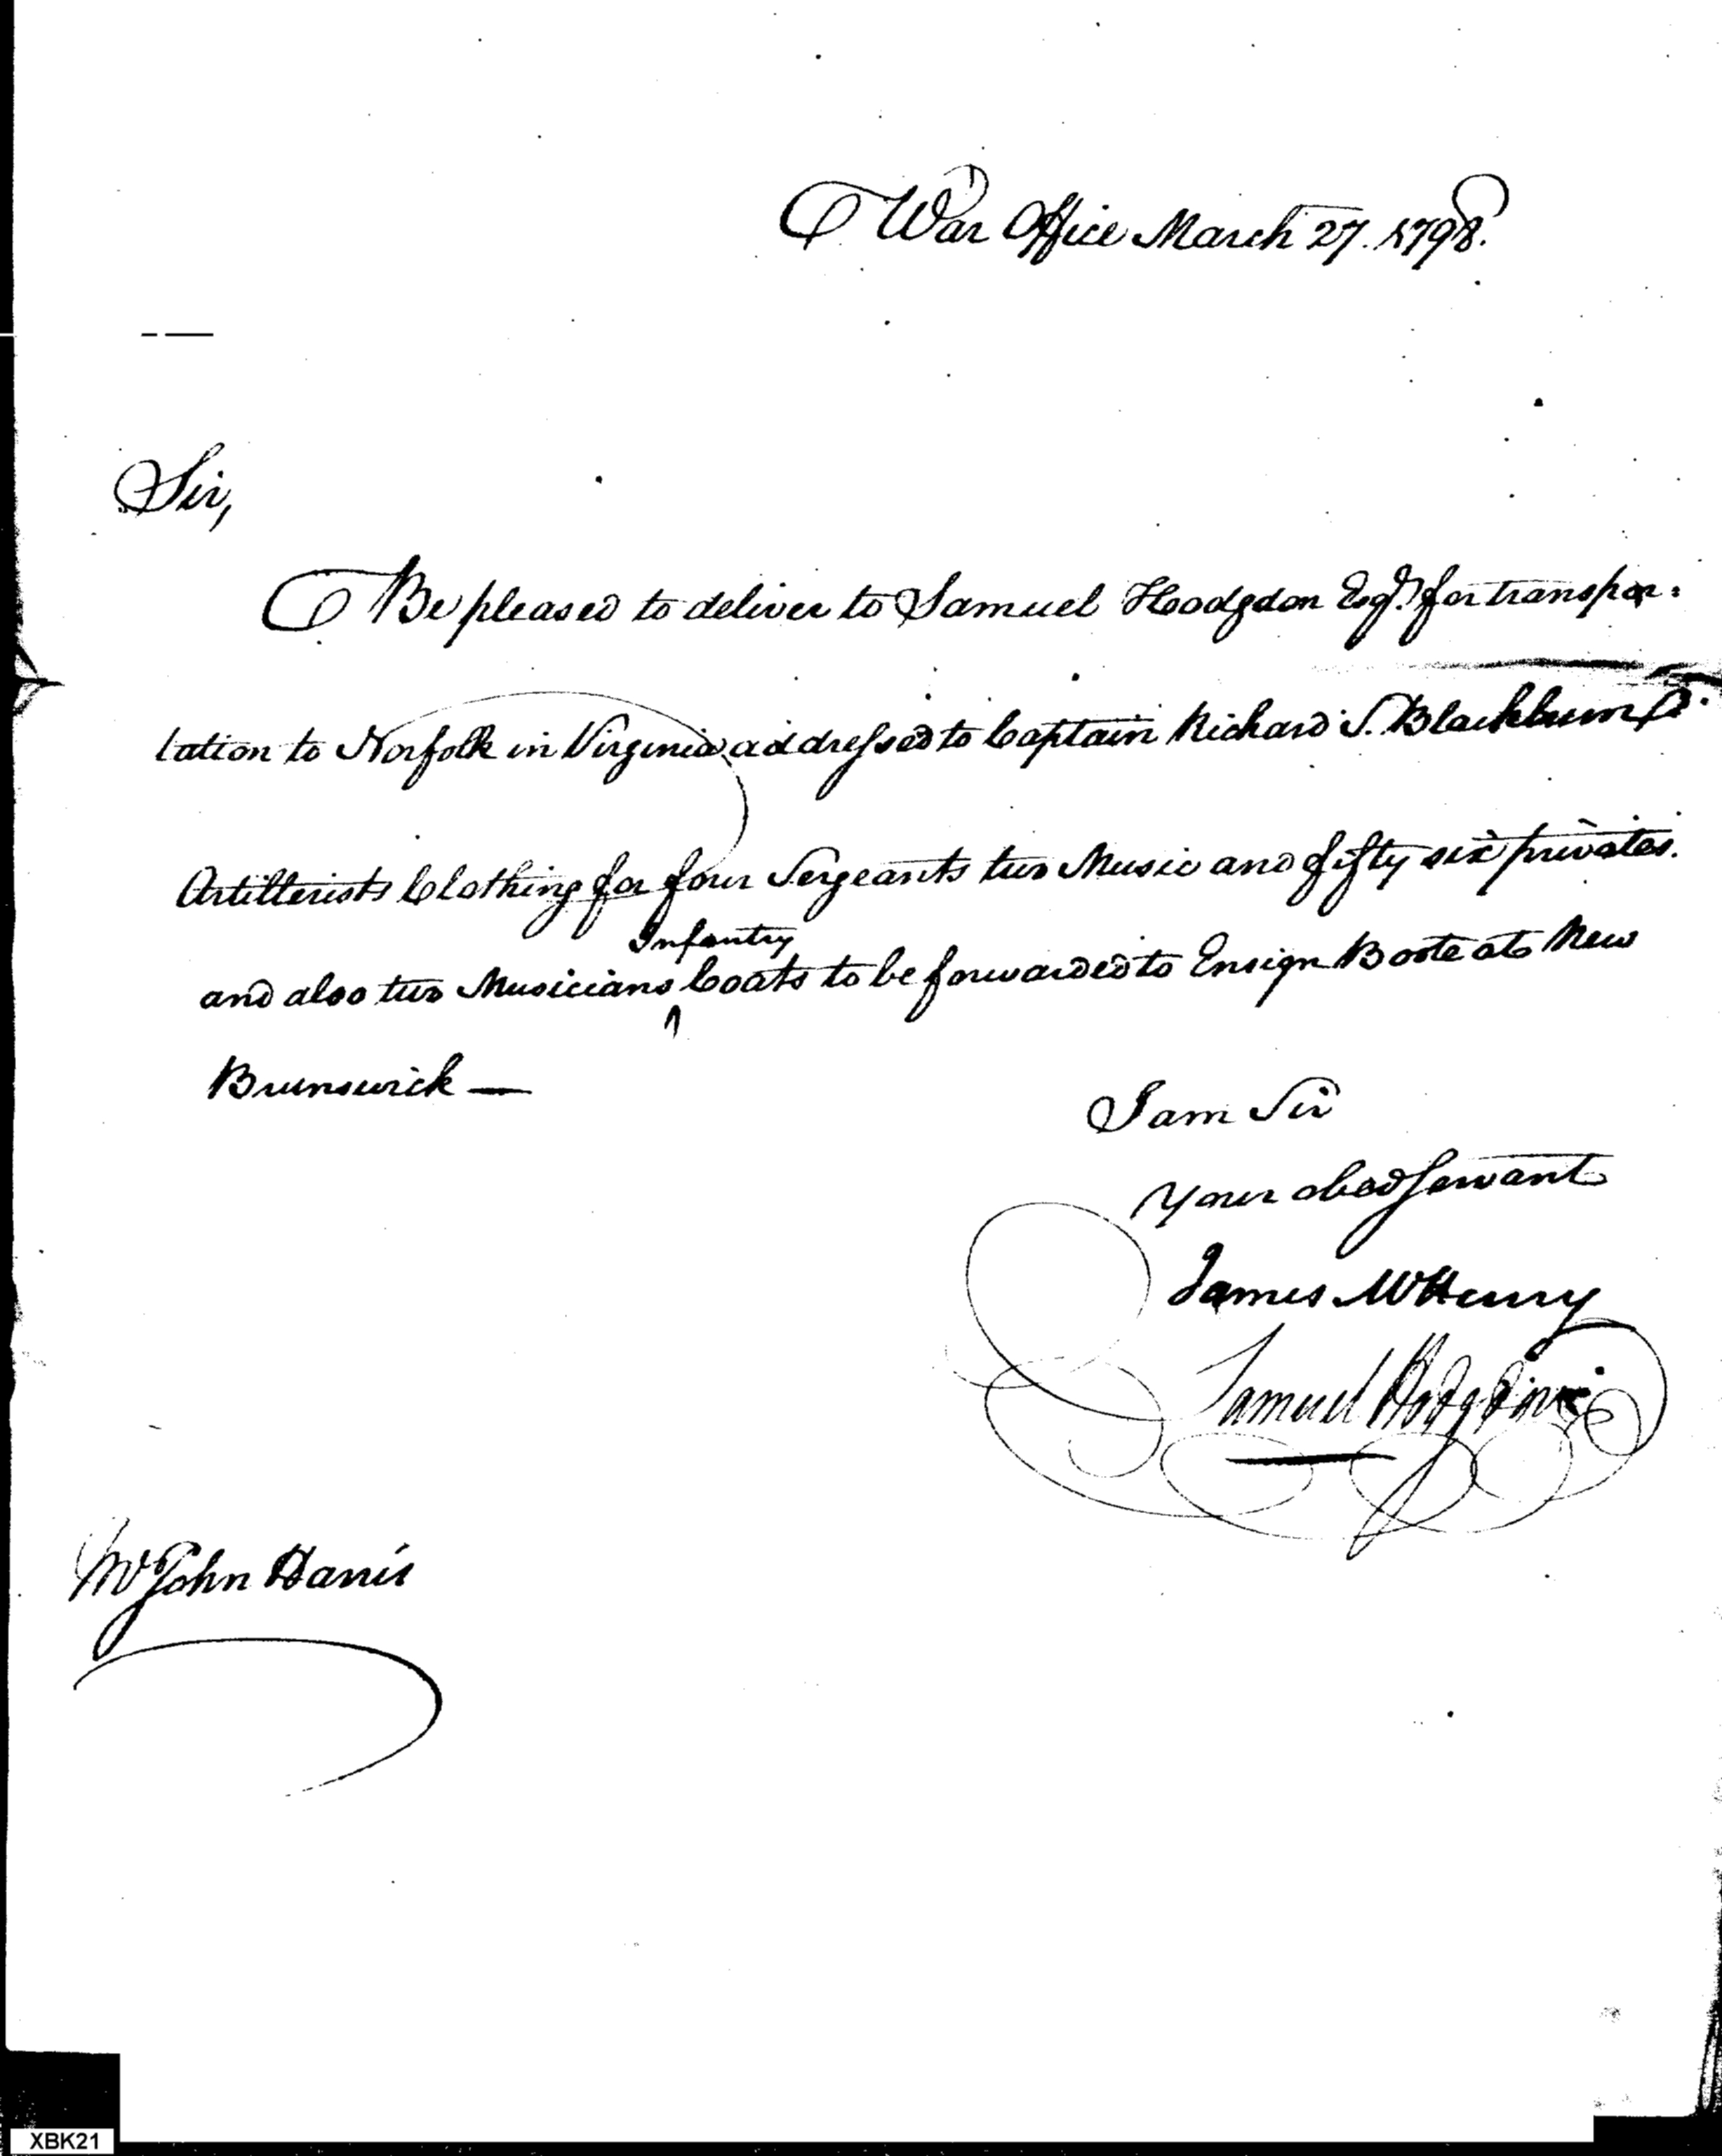 War Office March 27. 1798.
Sir,
Be pleased to deliver to Samuel Hodgdon Esqr. for transpor-
tation to Norfolk in Virginia addressed to Captain Richard S. Blackburn's
Artillerists Clothing for four Sergeants two Music and fifty six privates.
Infantry
and also two Musicians ^ Coats to be forwarded to Ensign Boote at New
Brunswick —
I am Sir
Your obed Servant
James McHenry
Samuel Hodgdon
Mr John Harris
XBK21